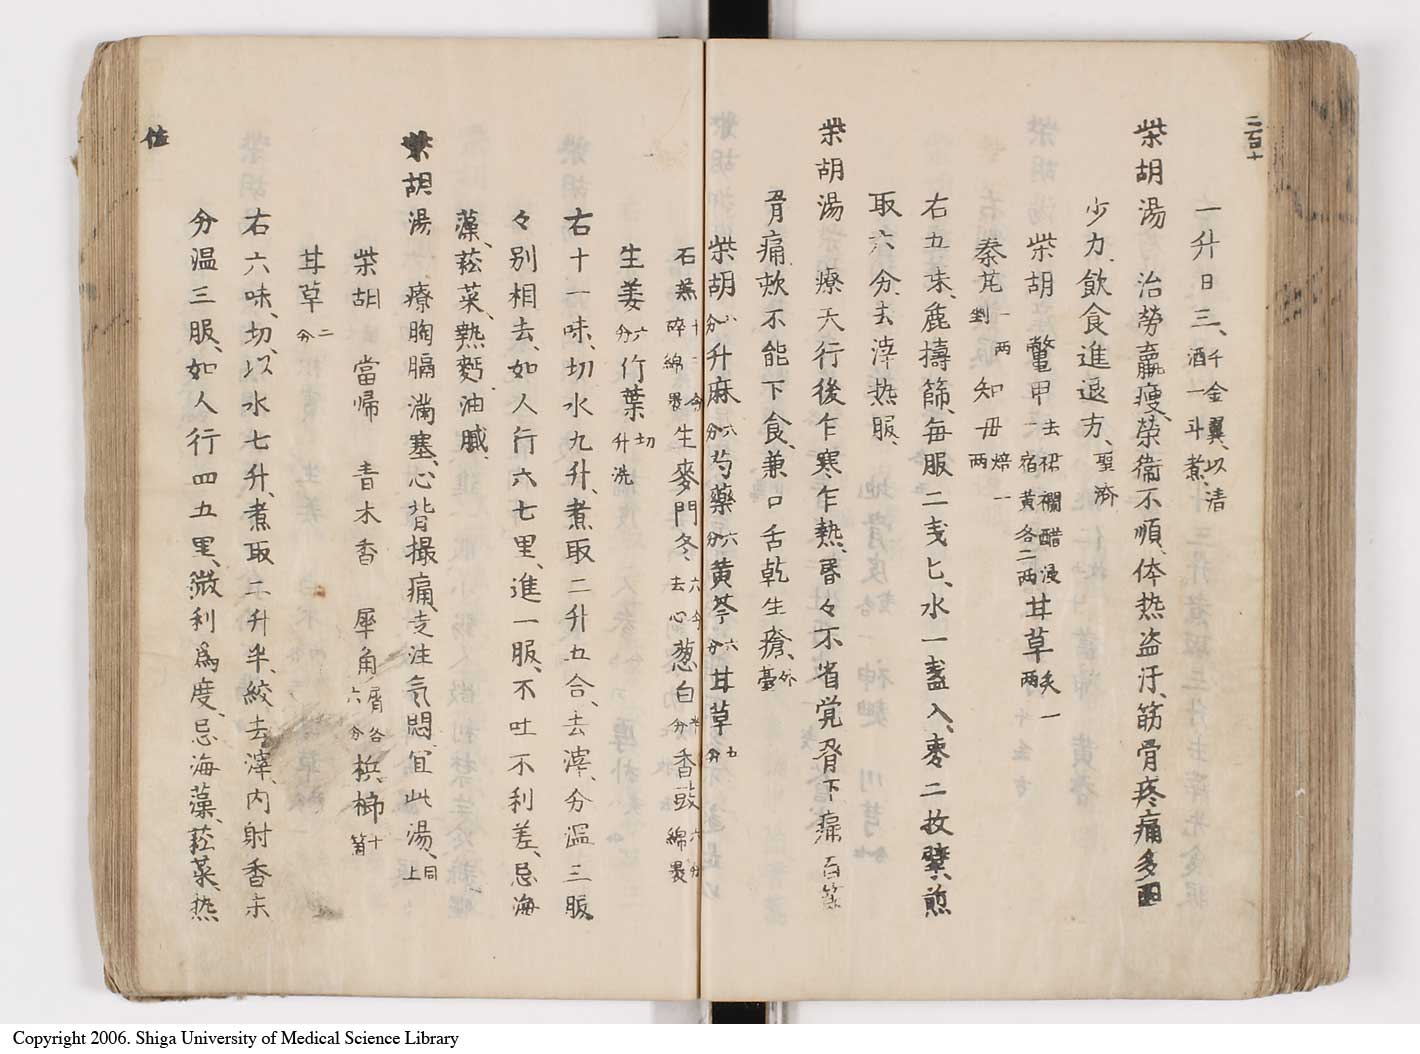 二百十
一升日三、千金翼、以清酒一斗煮、
柴胡湯 治勞羸瘦、榮衛不順、体热盗汗、筋骨疼痛、多困
少力、飲食進退方、聖済
柴胡 鼈甲去裙襴醋浸一宿黄各二两 甘草炙一两
秦芃剉一两 知毋焙一两
右五味、麁擣篩、每服二戔匕、水一盞、入棗二枚擘、煎
取六分、去滓热服、
柴胡湯 療天行後乍寒乍熱、昬々不省覚、脅下痛、百節
骨痛、欬不能下食、兼口舌乾生瘡、外臺
柴胡八分 升麻六分 芍藥六分 黄芩六分 甘草五分
石羔十二分碎綿褁 生麥門冬六分去心 葱白半分 香豉六分綿褁
生姜六分 竹葉切升洗
右十一味、切、水九升、煮取二升五合、去滓、分温三服、
々別相去、如人行六七里、進一服、不吐不利差、忌海
藻、菘菜、熱麪、油膩、
柴胡湯 療胸膈滿塞、心背撮痛、走注氣悶、宜此湯、同上
柴胡 當帰 青木香 犀角屑各六分 梹榔十箇
甘草二分
右六味、切、以水七升、煮取二升半、絞去滓、内射香末
分温三服、如人行四五里、微利爲度、忌海藻、菘菜、热
佐
Copyright 2006. Shiga University of Medical Science Library